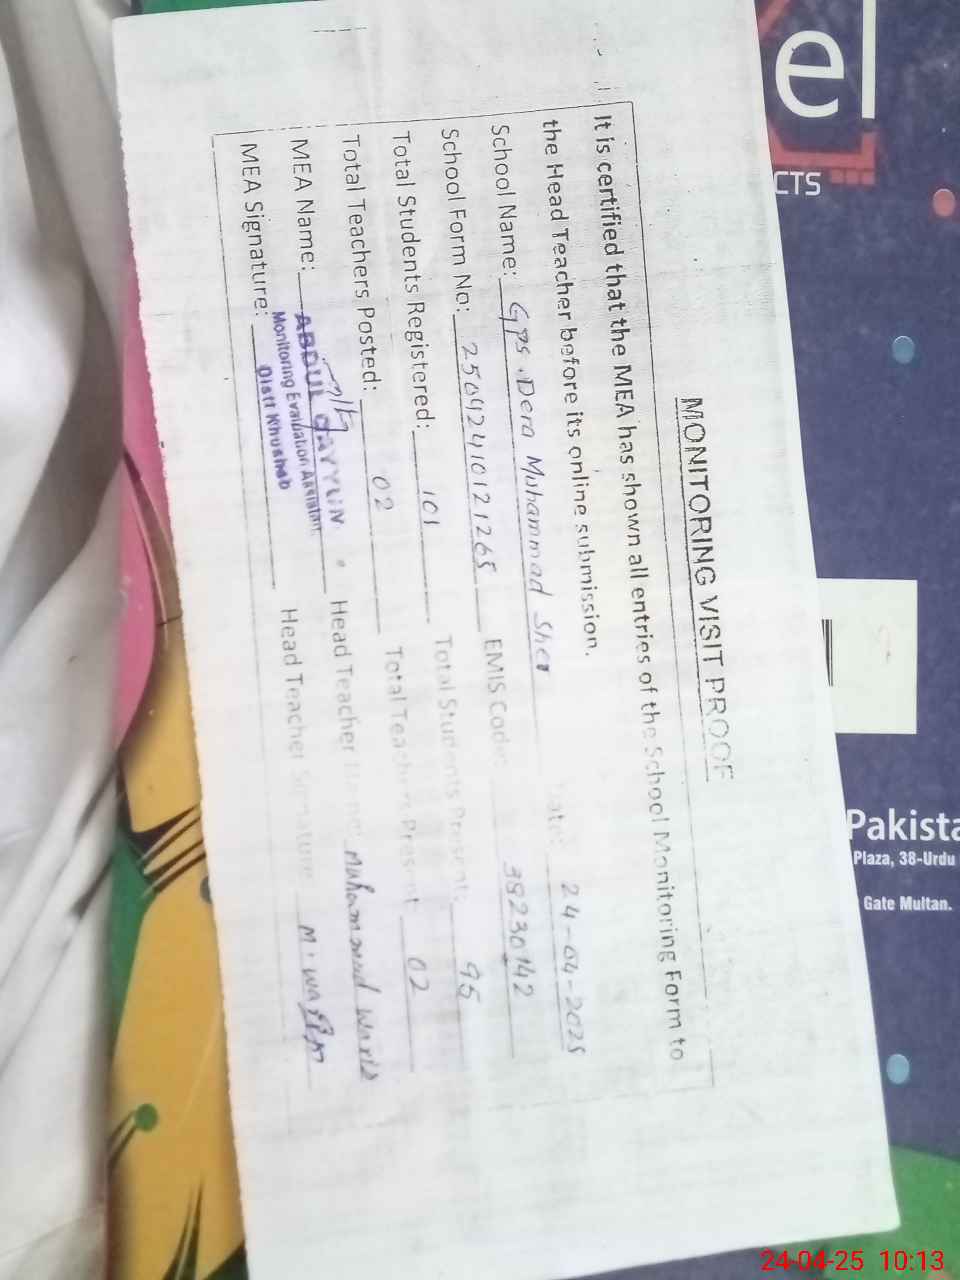 MONITORING VISIT PROOF
It is certified that the MEA has shown all entries of the School Monitoring Form to
the Head Teacher before its online submission.
School Name: Gps. Dera Muhammad Sher Date: 24-04-2025
School Form No: 2504241012 1265 EMIS Code: 39230142
Total Students Registered: 101 Total Students Present: 95
Total Teachers Posted: 02 Total Teachers Present: 02
MEA Name: ABDUL QAYYUM Head Teacher Name: Muhammad Waris
Monitoring Evaluation Assistant
MEA Signature: Distt Khushab Head Teacher Signature: M. Waris
el
CTS
Pakista
Plaza, 38-Urdu
Gate Multan.
24-04-25 10:13